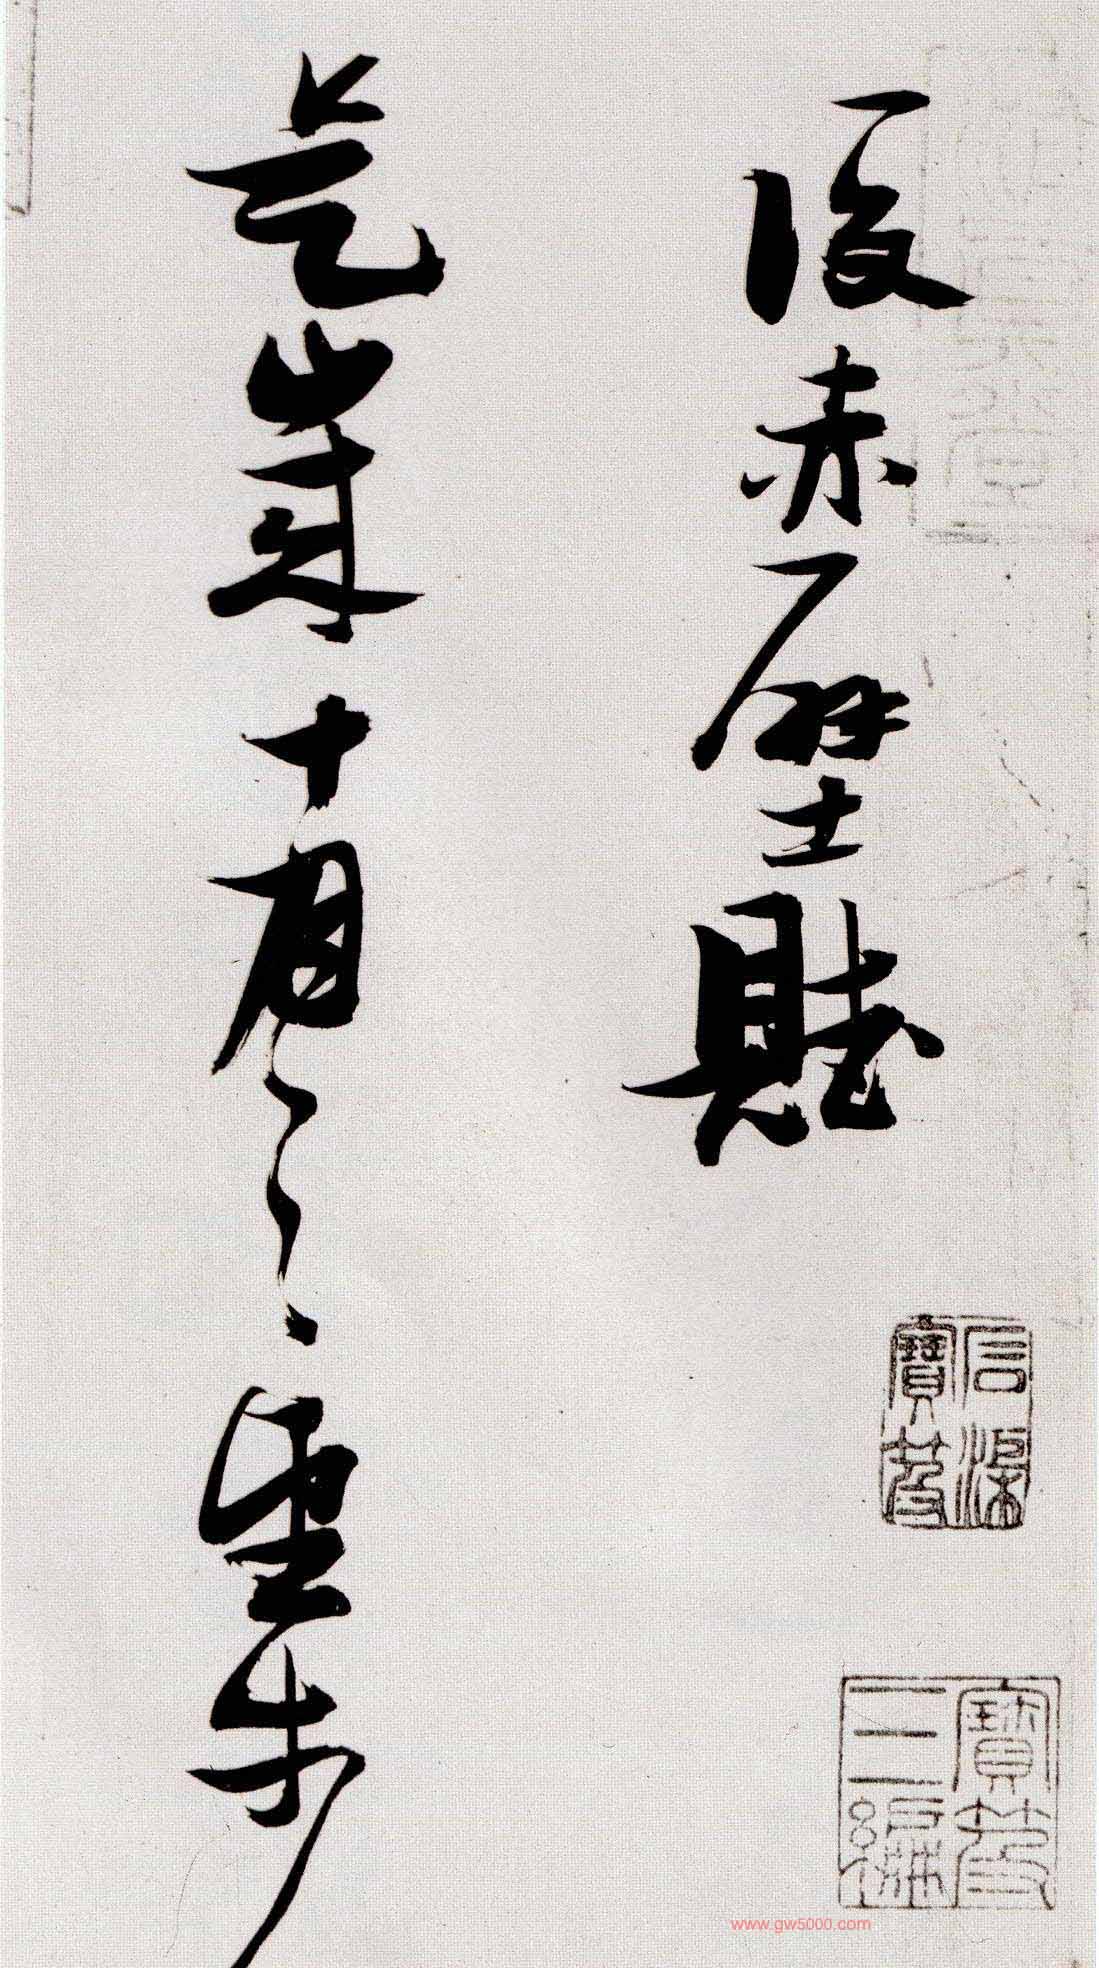 後赤壁賦
是歲十月之望步
石渠寶笈
寶笈三編
www.gw5000.com